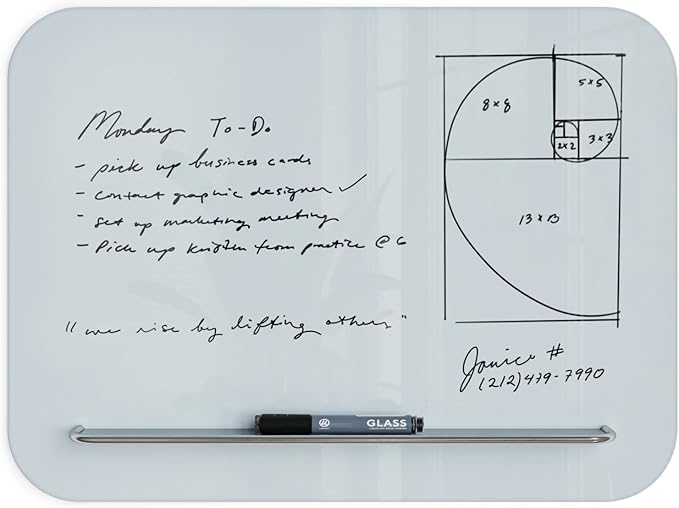 Monday To-Do
- pick up business cards
- contact graphic designer ✓
- set up marketing meeting
- Pick up Kristen from practice @ 6
"we rise by lifting others"
8 x 8
5 x 5
3 x 3
2 x 2
13 x 13
Janice #
(212) 479-7990
GLASS